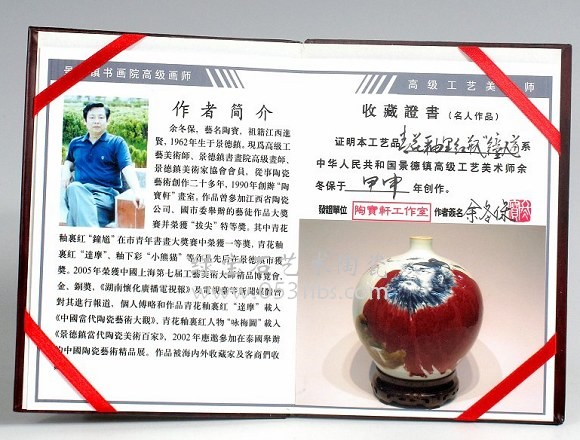 景德镇书画院高级画师
作者简介
余冬保，藝名陶寶，祖籍江西進
賢，1962年生于景德鎮，現爲高級工
藝美術師、景德鎮書畫院高級畫師、
景德鎮美術家協會會員，從事陶瓷
藝術創作二十多年，1990年創辦“陶
寶軒”畫室。作品曾參加江西省陶瓷
公司、國市委舉辦的藝徒作品大獎
賽并榮獲“拔尖”特等獎。其中青花
釉裏紅“鐘馗”在市青年書畫大獎賽中榮獲一等獎，青花釉
裏紅“達摩”、釉下彩“小熊猫”等作品先后在景德鎮市獲
獎。2005年榮獲中國上海第七届工藝美術大師精品博覽會
金、銅獎，《湖南懷化廣播電視報》及電視臺等新聞媒體曾
對其進行報道，個人傳略和作品青花釉裏紅“達摩”載入
《中國當代陶瓷藝術大觀》、青花釉裏紅人物“咏梅圖”載入
《景德鎮當代陶瓷美術百家》，2002年應邀參加在泰國舉辦
的中國陶瓷藝術精品展。作品被海内外收藏家及客商們收
高级工艺美术师
收藏證書（名人作品）
证明本工艺品青花釉里红瓶《鐘馗》系
中华人民共和国景德镇高级工艺美术师余
冬保于 甲申 年创作。
發證單位 陶寶軒工作室 作者簽名 余冬保
www.053hbs.com